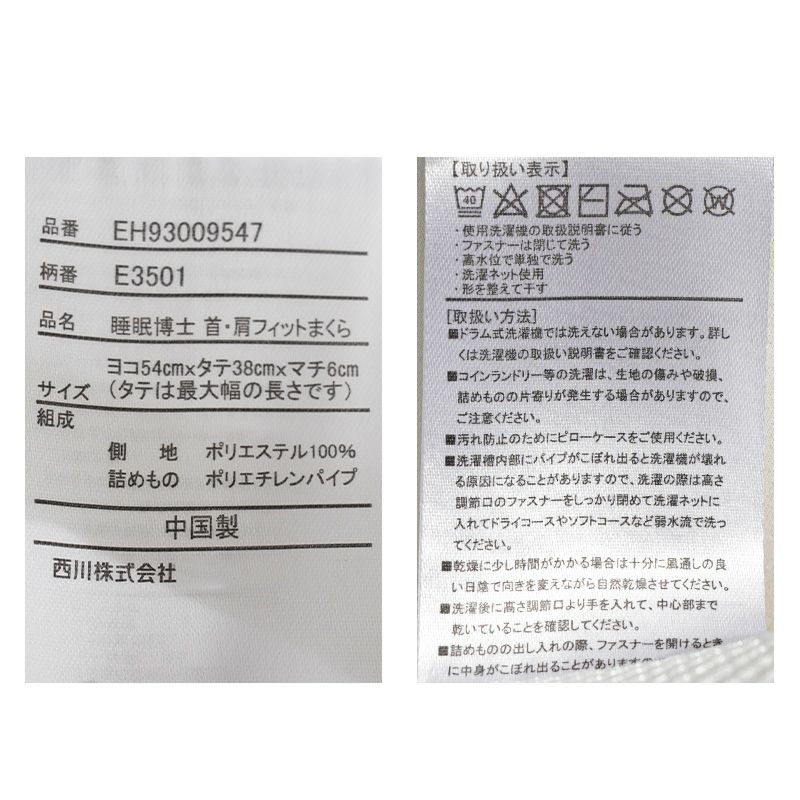 品番 EH93009547
柄番 E3501
品名 睡眠博士 首・肩フィットまくら
ヨコ54cm×タテ38cm×マチ6cm
サイズ (タテは最大幅の長さです)
組成
側 地 ポリエステル100%
詰めもの ポリエチレンパイプ
中国製
西川株式会社
【取り扱い表示】
40
・使用洗濯機の取扱説明書に従う
・ファスナーは閉じて洗う
・高水位で単独で洗う
・洗濯ネット使用
・形を整えて干す
[取扱い方法]
■ドラム式洗濯機では洗えない場合があります。詳し
くは洗濯機の取扱い説明書をご確認ください。
■コインランドリー等の洗濯は、生地の傷みや破損、
詰めものの片寄りが発生する場合がありますので、
ご注意ください。
■汚れ防止のためにピローケースをご使用ください。
■洗濯槽内部にパイプがこぼれ出ると洗濯機が壊れ
る原因になることがありますので、洗濯の際は高さ
調節口のファスナーをしっかり閉めて洗濯ネットに
入れてドライコースやソフトコースなど弱水流で洗っ
てください。
■乾燥に少し時間がかかる場合は十分に風通しの良
い日陰で向きを変えながら自然乾燥させてください。
■洗濯後に高さ調節口より手を入れて、中心部まで
乾いていることを確認してください。
■詰めものの出し入れの際、ファスナーを開けるとき
に中身がこぼれ出ることがありますの